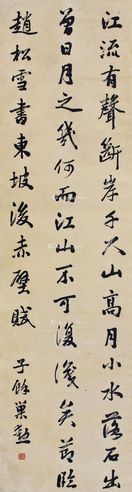 江流有聲斷岸千尺山高月小水落石出
曾日月之幾何而江山不可復識矣節臨
趙松雪書東坡後赤壁賦 子餘巢勳